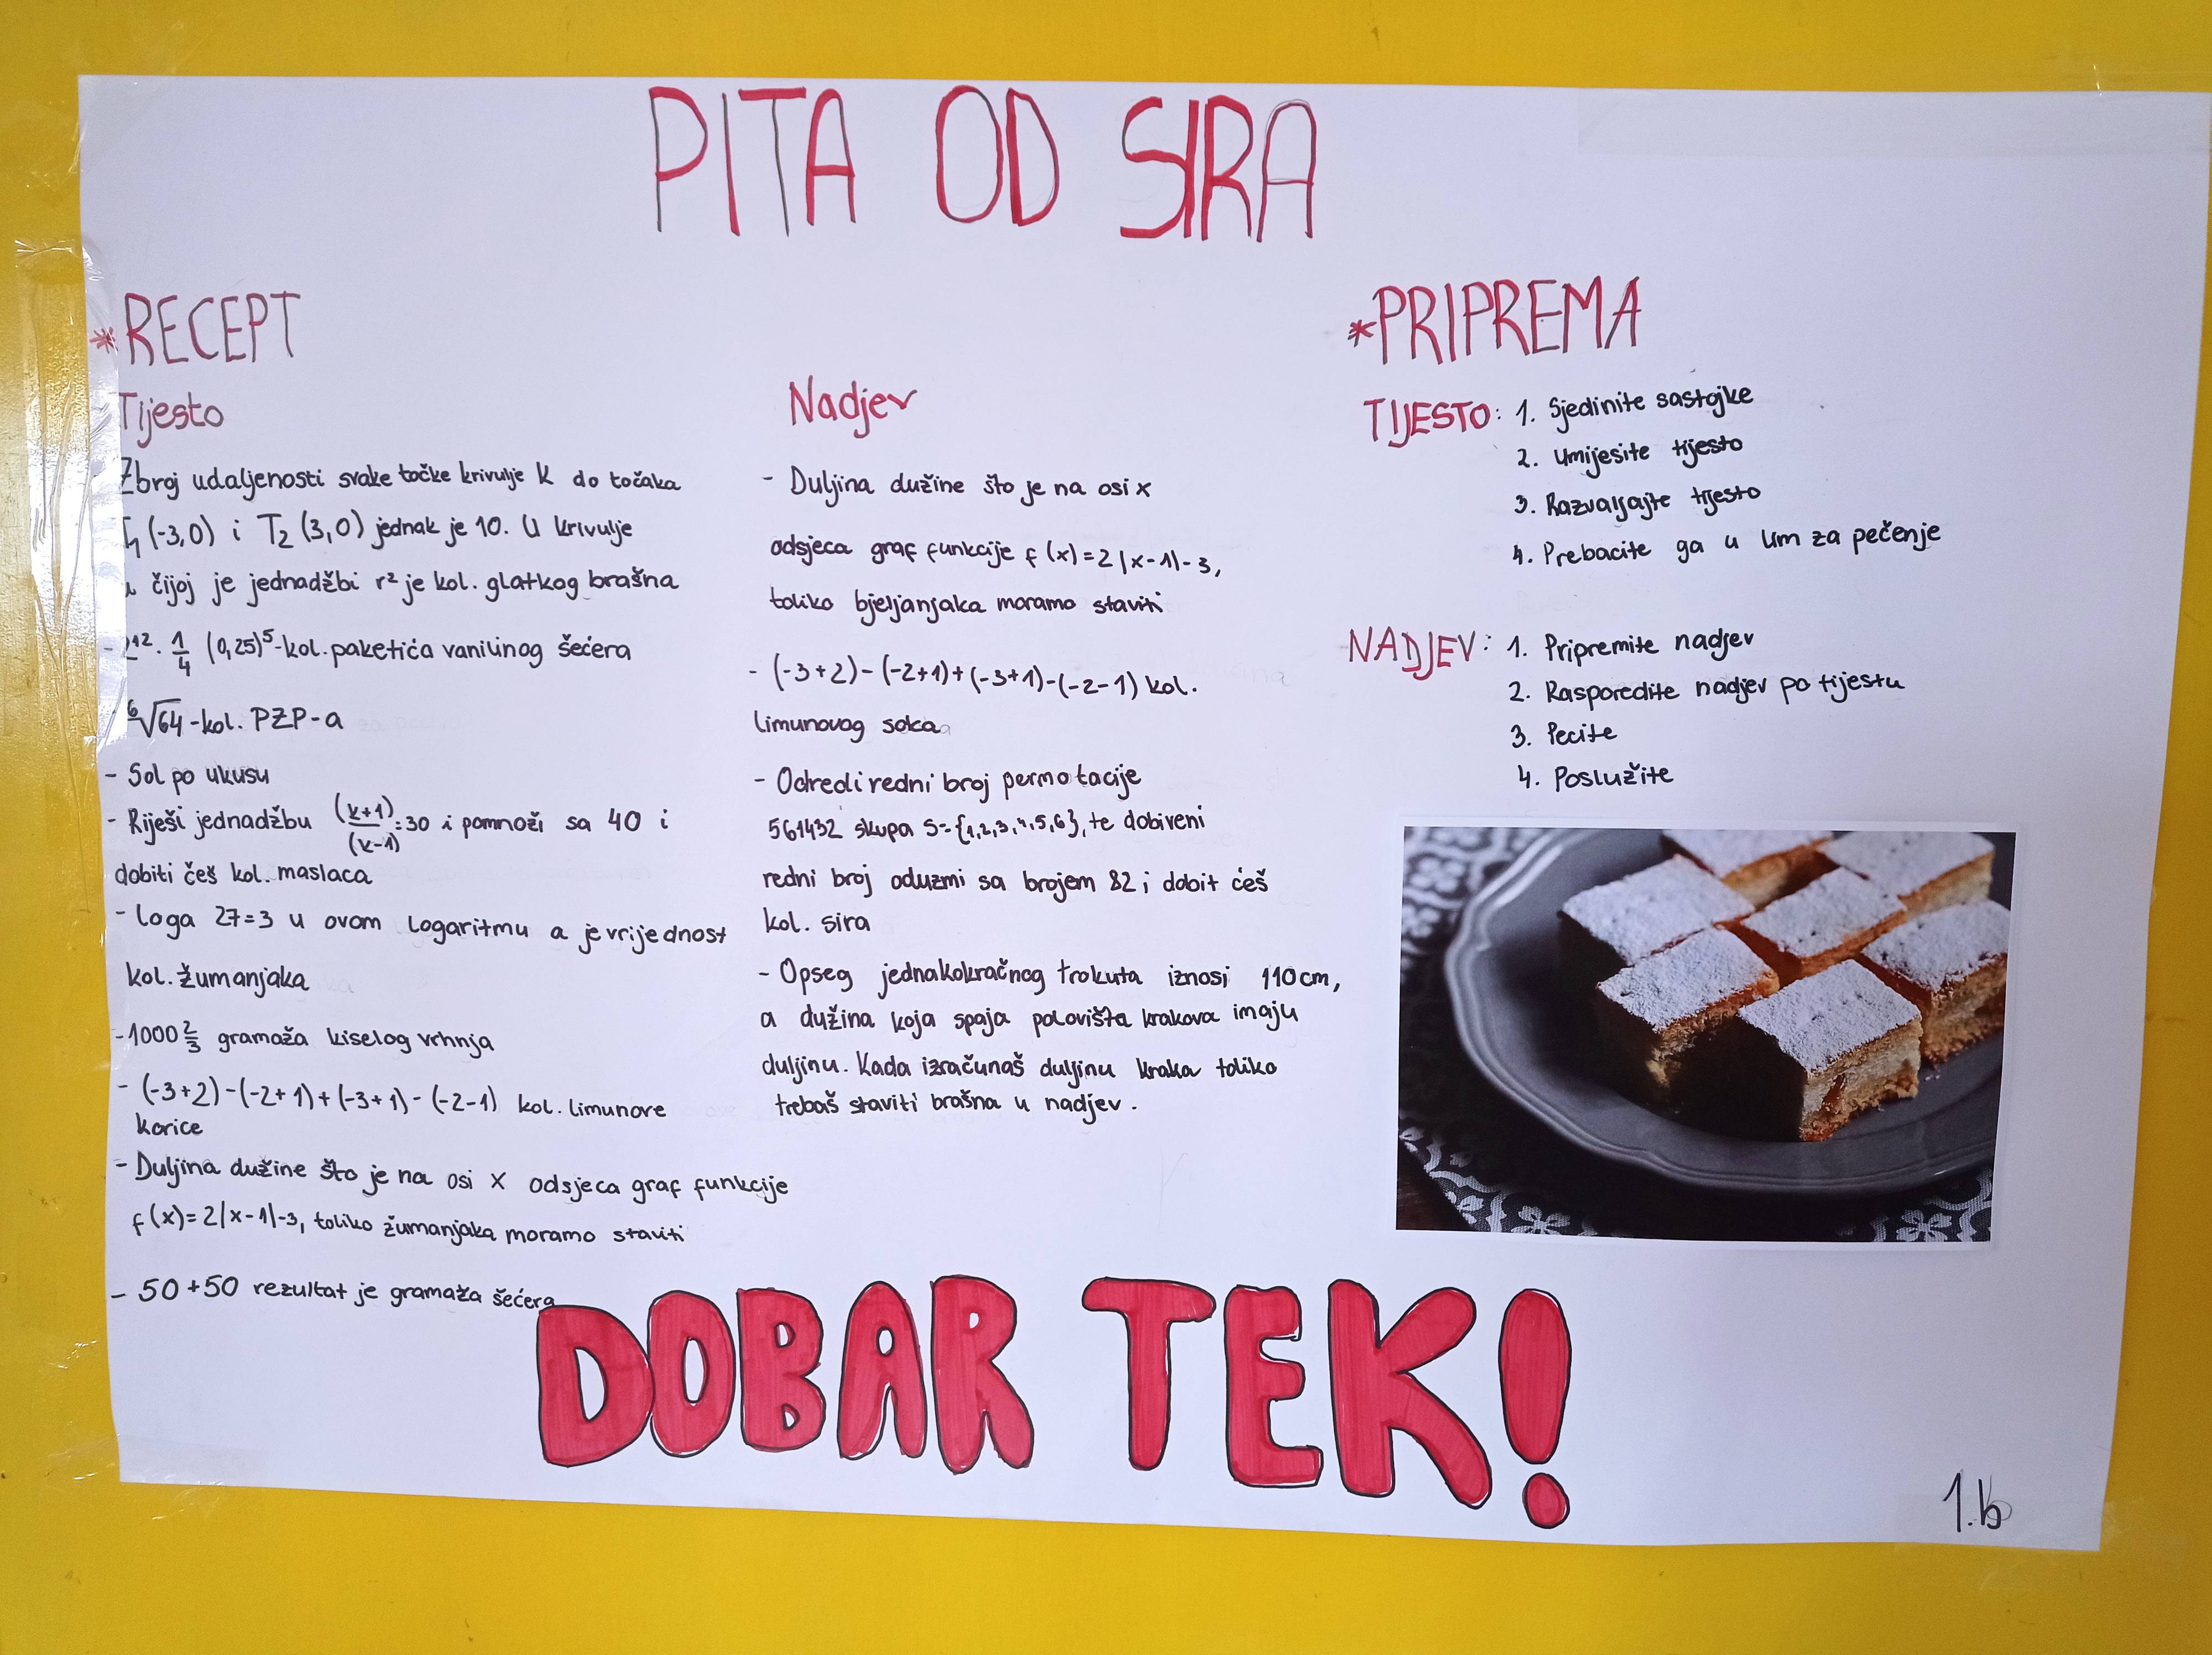 PITA OD SIRA
*RECEPT
Tijesto
Zbroj udaljenosti svake točke krivulje K do točaka
(-3,0) i T2 (3,0) jednak je 10. U krivulje
u čijoj je jednadžbi r² je kol. glatkog brašna
- 2¹². 1/4 (0,25)⁵-kol. paketića vanilinog šećera
⁶√64-kol. PZP-a
- Sol po ukusu
- Riješi jednadžbu (k+1)/(k-1)=30 i pomnoži sa 40 i
dobiti češ kol. maslaca
- loga 27=3 u ovom logaritmu a je vrijednost
kol. žumanjaka
-1000 2/3 gramaža kiselog vrhnja
- (-3+2)-(-2+1)+(-3+1)-(-2-1) kol. limunove
korice
- Duljina dužine što je na osi x odsjeca graf funkcije
f(x)=2|x-1|-3, toliko žumanjaka moramo staviti
- 50+50 rezultat je gramaža šećera
Nadjev
- Duljina dužine što je na osi x
odsjeca graf funkcije f(x)=2|x-1|-3,
toliko bjeljanjaka moramo staviti
- (-3+2)-(-2+1)+(-3+1)-(-2-1) kol.
limunovog soka
- Odredi redni broj permotacije
561432 skupa S={1,2,3,4,5,6}, te dobiveni
redni broj oduzmi sa brojem 82 i dobit ćeš
kol. sira
- Opseg jednakokračnog trokuta iznosi 110cm,
a dužina koja spaja polovišta krakova imaju
duljinu. Kada izračunaš duljinu kraka toliko
trebaš staviti brašna u nadjev.
*PRIPREMA
TIJESTO: 1. Sjedinite sastojke
2. Umijesite tijesto
3. Razvaljajte tijesto
4. Prebacite ga u lim za pečenje
NADJEV: 1. Pripremite nadjev
2. Rasporedite nadjev po tijestu
3. Pecite
4. Poslužite
DOBAR TEK!
1.b